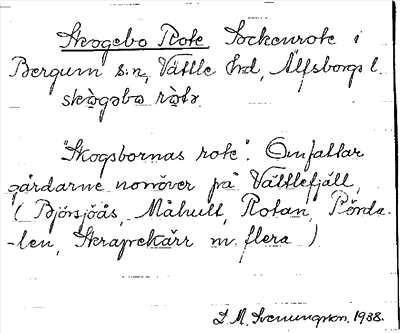 Skogebo Rote Sockenrote i
Bergum s:n, Vättle hd, Älfsborgs l.
skògəbə ròtə.
"Skogsbornas rote". Omfattar
gårdarne norröver på Vättlefjäll,
( Björsjöås, Måhult, Rotan, Rörda-
-len, Skraprekärr m. flera )
D. M. Svenungsson. 1938.